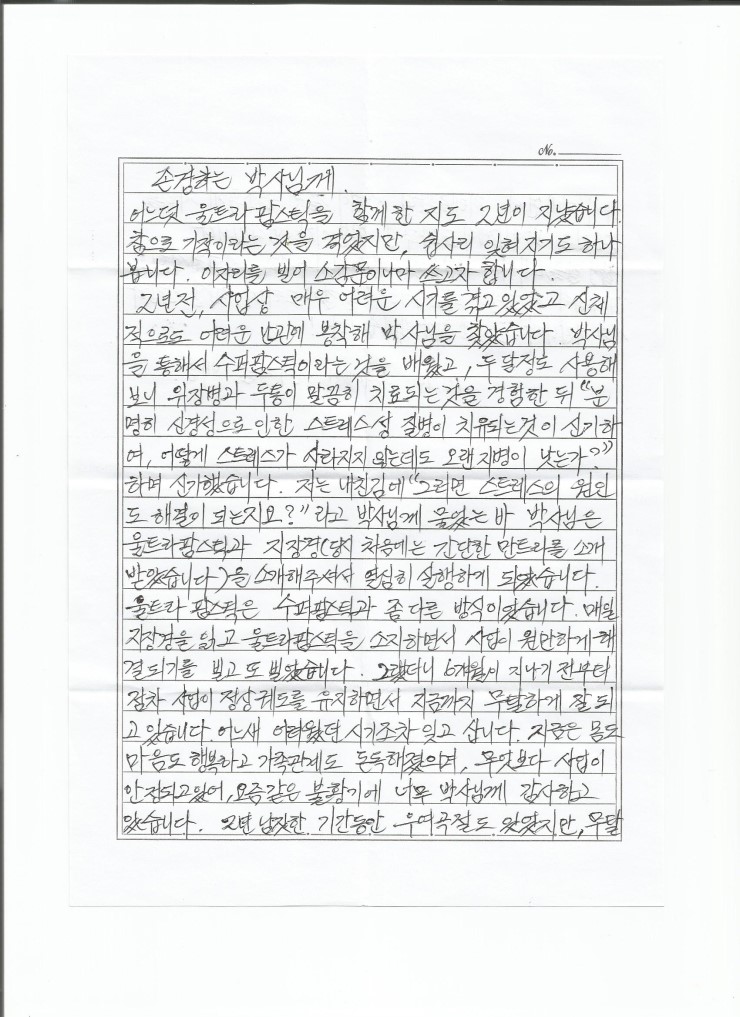 No.
손경하는 박사님께.
어느덧 울트라팜스틱을 함께한 지도 2년이 지났습니다.
참으로 기적이라는 것을 겪었지만, 쉽사리 잊혀지기도 하나
봅니다. 이자리를 빌어 소감문이나마 쓰고자 합니다.
2년전, 사업상 매우 어려운 시기를 겪고 있었고 신체
적으로도 어려운 난관에 봉착해 박사님을 찾았습니다. 박사님
을 통해서 수퍼팜스틱이라는 것을 배웠고, 두달정도 사용해
보니 위장병과 두통이 말끔히 치료되는 것을 경험한 뒤 "분
명히 신경성으로 인한 스트레스성 질병이 치유되는것이 신기하
여, 어떻게 스트레스가 사라지지 않는데도 오랜지병이 낫는가?"
하며 신기했습니다. 저는 내친김에 "그러면 스트레스의 원인
도 해결이 되는지요?" 라고 박사님께 물었는 바 박사님은
울트라팜스틱과 지장경(당시 처음에는 간단한 만트라를 소개
받았습니다)을 소개해주셔서 열심히 실행하게 되었습니다.
울트라 팜스틱은 수퍼팜스틱과 좀 다른 방식이었습니다. 매일
지장경을 읽고 울트라팜스틱을 소지하면서 사업이 원만하게 해
결되기를 빌고 또 빌었습니다. 그랬더니 6개월이 지나기 전부터
점차 사업이 정상궤도를 유지하면서 지금까지 무탈하게 잘 되
고 있습니다. 어느새 어려웠던 시기조차 잊고 삽니다. 지금은 몸도
마음도 행복하고 가족관계도 돈독해졌으며, 무엇보다 사업이
안정되고있어, 요즘같은 불황기에 너무 박사님께 감사하고
있습니다. 2년 남짓한 기간동안 우여곡절도 있었지만, 무탈